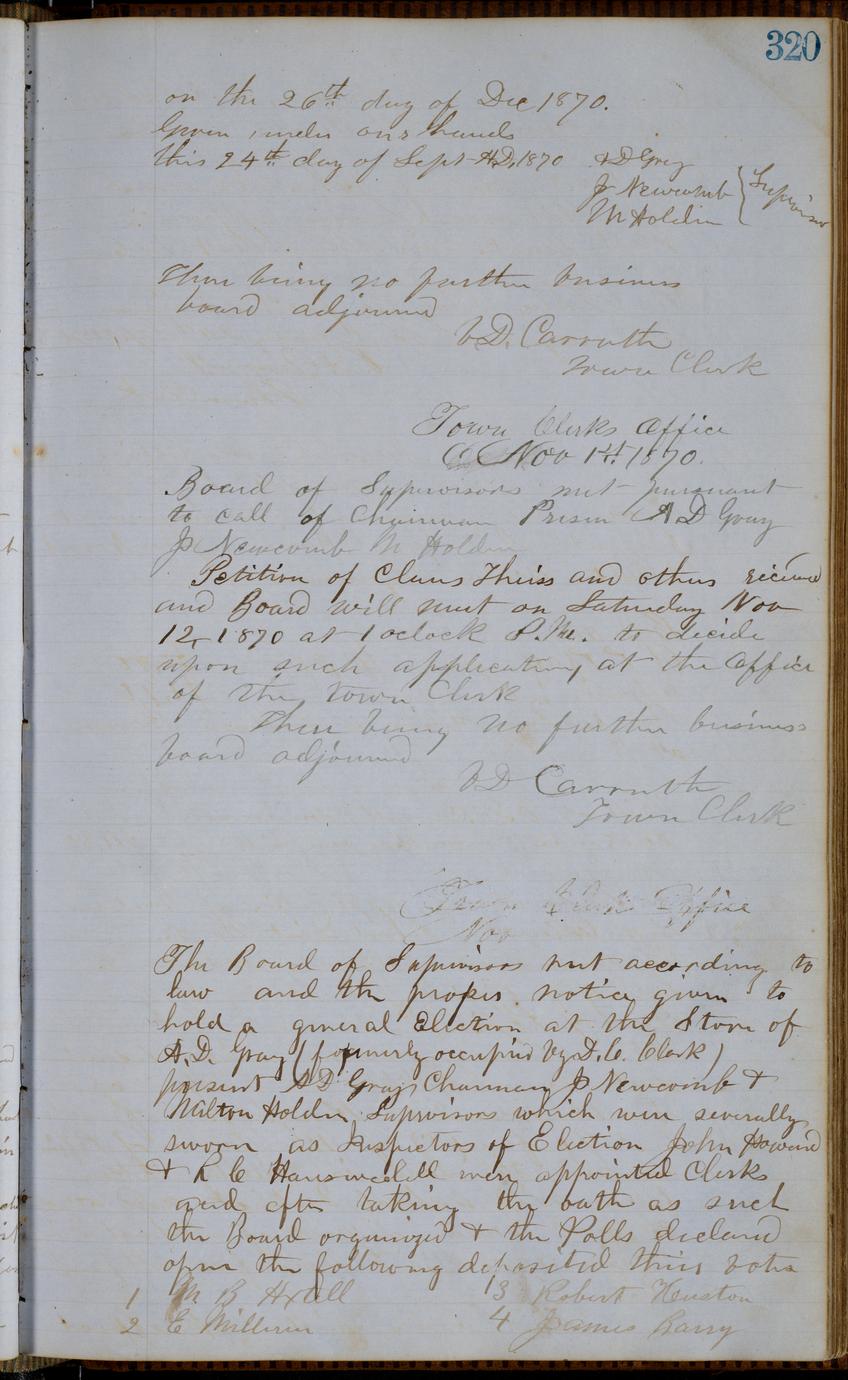 320
on the 26th day of Dec 1870.
Given under our hands
this 24th day of Sept A.D. 1870 A D Gray
J Newcomb
M Holden
Supervisors
There being no further business
board adjourned
V D. Carruth
Town Clerk
Town Clerks Office
Nov 1st 1870.
Board of Supervisors met pursuant
to call of Chairman Presen A D Gray
J Newcomb M Holden
Petition of Claus Theiss and others received
and Board will meet on Saturday Nov
12, 1870 at 1 oclock P.M. to decide
upon such application at the office
of the town Clerk
There being no further business
board adjourned
V D Carruth
Town Clerk
Town Clerks Office
Nov
The Board of Supervisors met according to
law and the proper notice given to
hold a general Election at the Store of
A. D. Gray (formerly occupied by D. C. Clark)
present A D Gray Chairman J Newcomb +
Milton Holden Supervisors which were severally
sworn as Inspectors of Election John Howard
+ L C were appointed Clerks
and after taking the oath as such
the Board organized + the Polls declared
open the following deposited their votes
1 M B 3 Robert Huston
2 E Milliren 4 James Barry